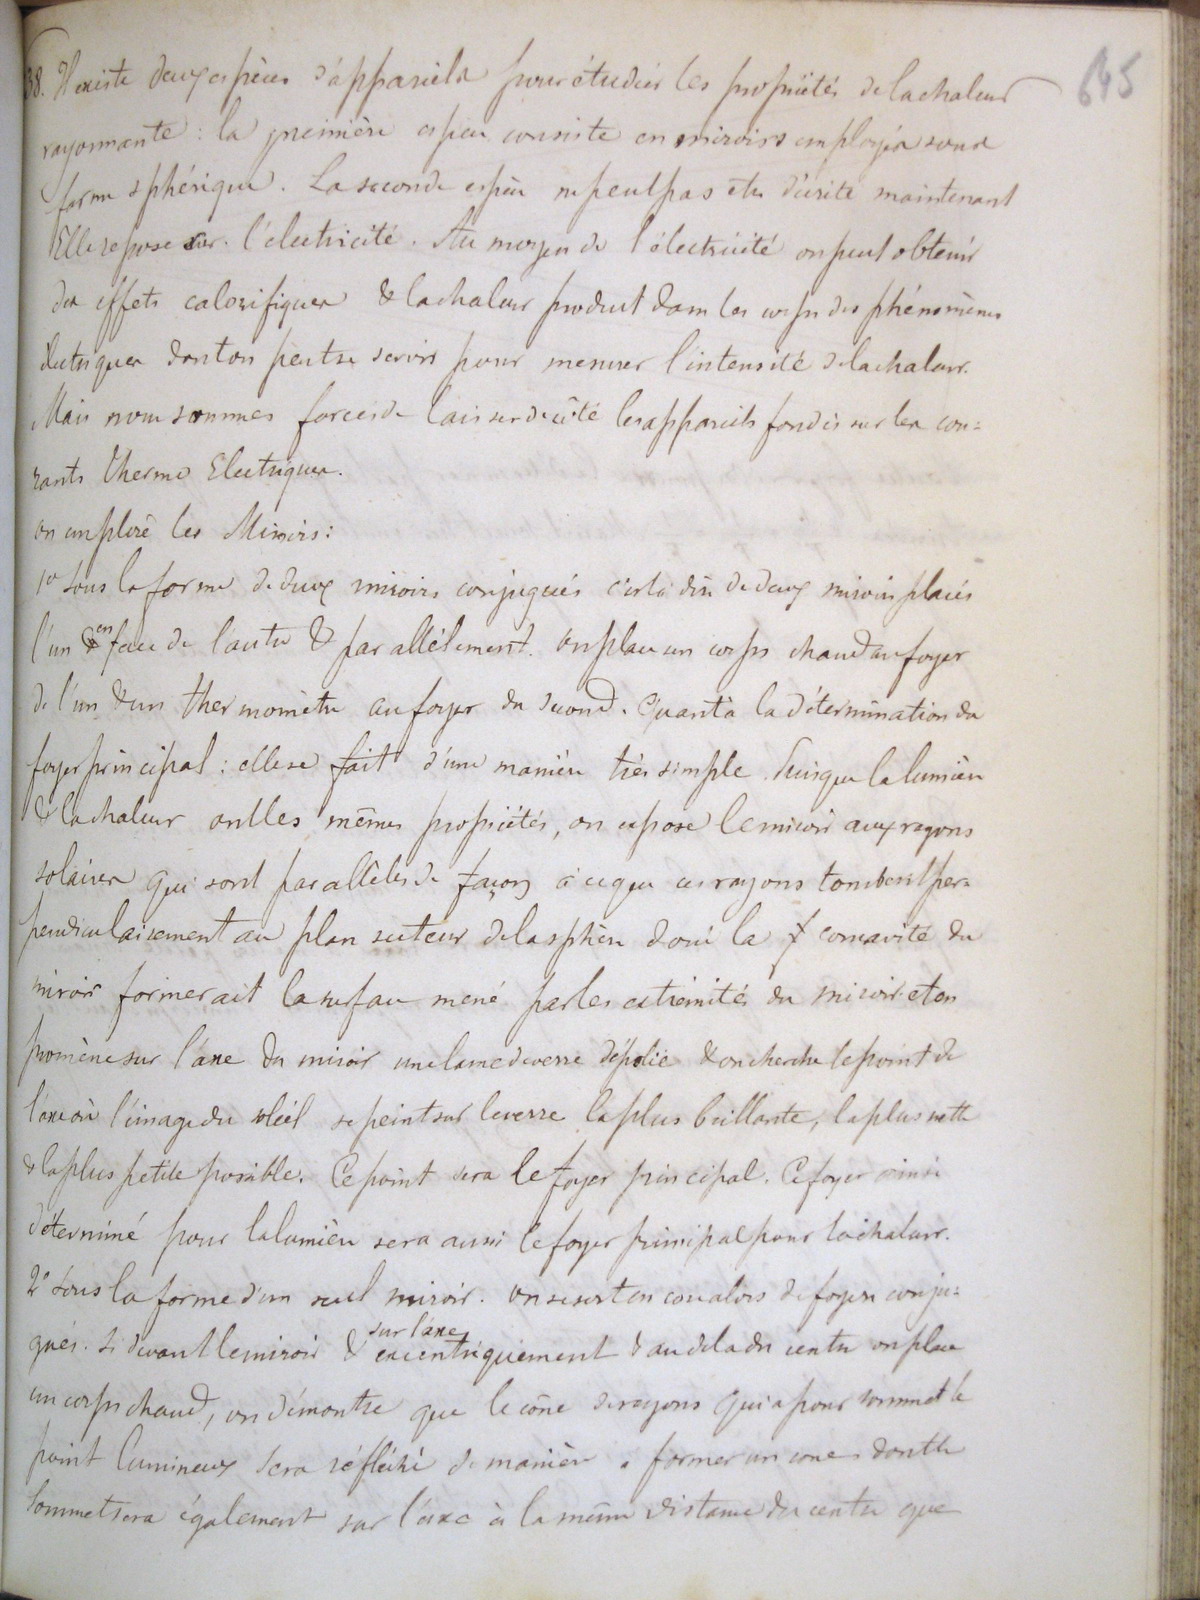 645
38. Il existe deux espèces d'appareils pour étudier les propriétés de la chaleur
rayonnante : la première espèce consiste en miroirs employés sous
forme sphérique. La seconde espèce ne peut pas être décrite maintenant
Elle repose sur l'électricité. Au moyen de l'électricité on peut obtenir
des effets calorifiques & la chaleur produit dans les corps des phénomènes
électriques dont on peut se servir pour mesurer l'intensité de la chaleur.
Mais nous sommes forcés de laisser de côté les appareils fondés sur les cou=
rants thermo Electriques.
on emploie les Miroirs :
1º sous la forme de deux miroirs conjugués c'est à dire de deux miroirs placés
l'un en face de l'autre & parallèlement. on place un corps chaud au foyer
de l'un & un thermomètre au foyer du second. Quant à la détermination du
foyer principal : elle se fait d'une manière très simple. Puisque la lumière
& la chaleur ont les mêmes propriétés, on expose le miroir aux rayons
solaires qui sont parallèles de façon à ce que ces rayons tombent per=
pendiculairement au plan secteur de la sphère dont la concavité du
miroir formerait la surface mené par les extrémités du miroir et on
promène sur l'axe du miroir une lame de verre dépolie & on cherche le point de
l'axe où l'image du soleil se peint sur le verre la plus brillante, la plus nette
& la plus petite possible. Ce point sera le foyer principal. Ce foyer ainsi
déterminé pour la lumière sera aussi le foyer principal pour la chaleur.
2º sous la forme d'un seul miroir. on se sert en ce cas alors de foyers conju=
gués. Si devant le miroir & sur l'axe excentriquement & au delà du centre on place
un corps chaud, on démontre que le cône de rayons qui a pour sommet le
point lumineux sera réfléchi de manière à former un cone dont le
sommet sera également sur l'axe à la même distance du centre que